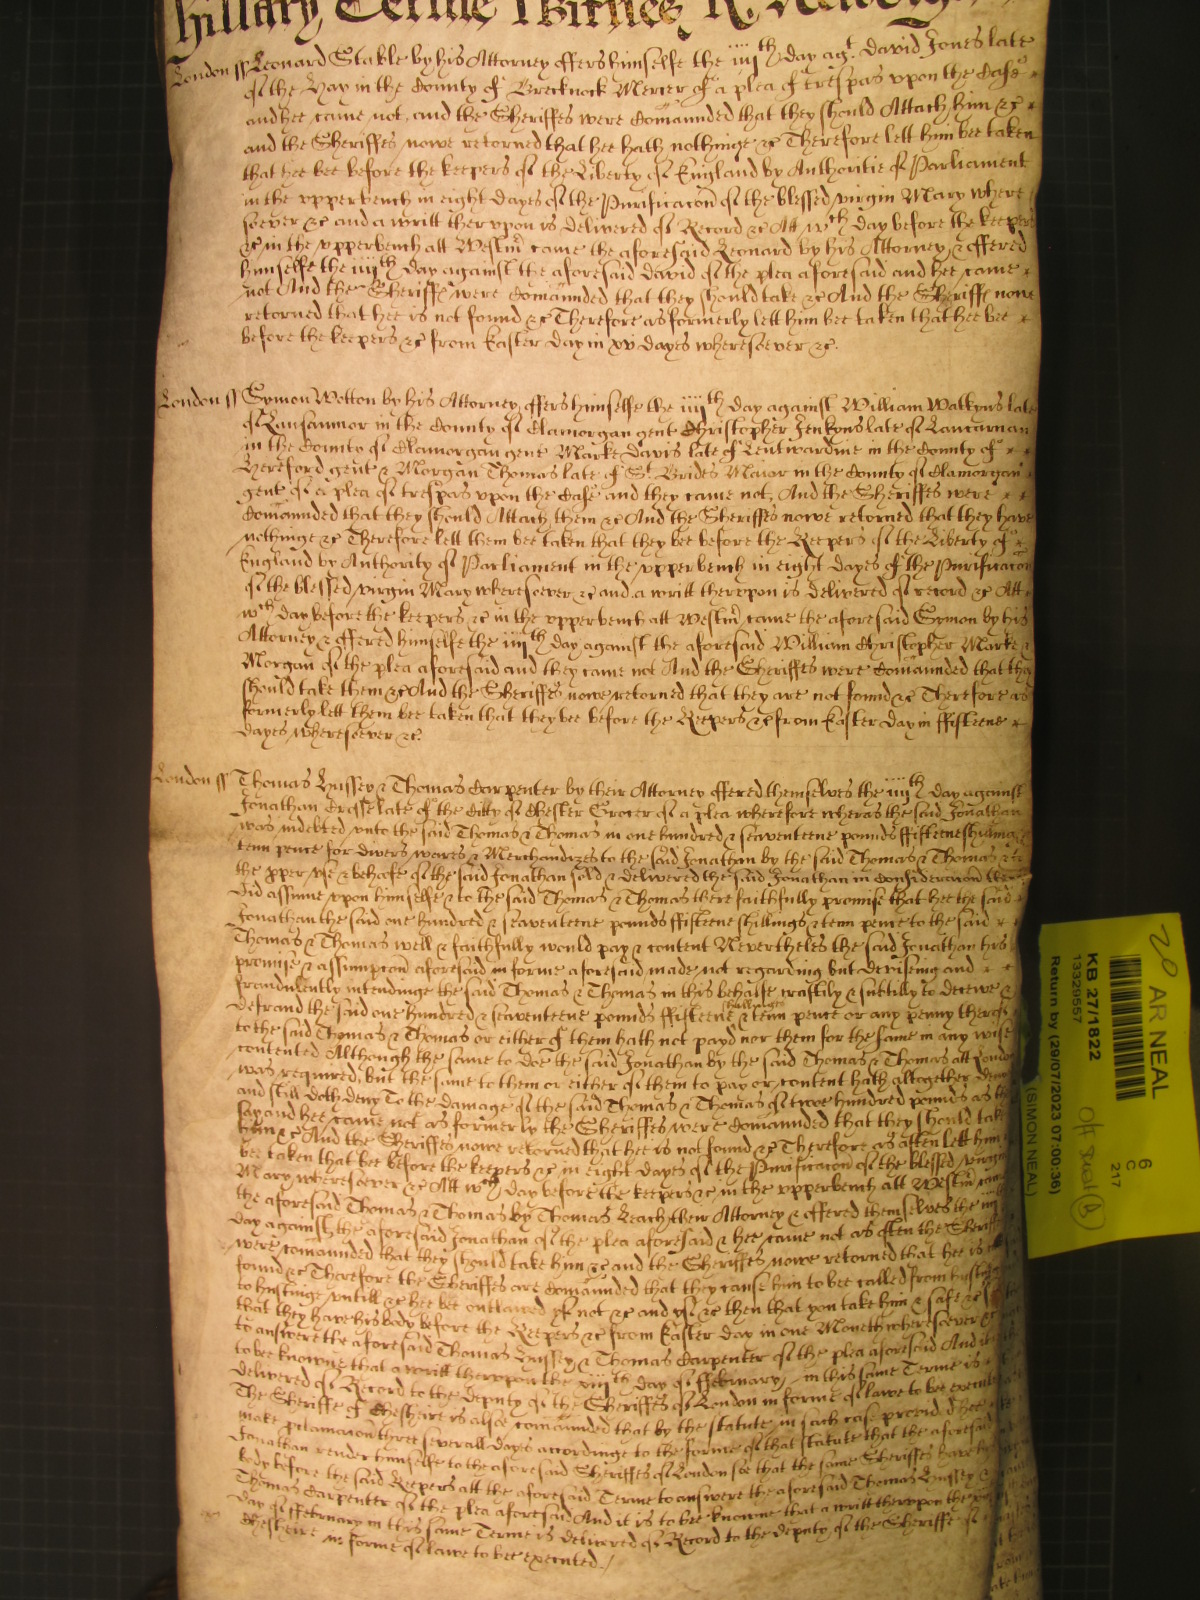 Hillary Terme Witnes R.
London ss Leonard Stakle by his Attorney offers himselfe the iiijth day agt. David Jones late
of the Hay in the County of Brecknock Mercer of a plea of trespas vpon the Case
and hee came not, and the Sheriffes were Comaunded that they should Attach him &c
and the Sheriffes nowe retorned that hee hath nothinge &c Therefore lett him bee taken
that hee bee before the keepers of the Liberty of England by Authoritie of Parliament
in the vpperbench in eight dayes of the Purificacon of the blessed virgin Mary where
soever &c and a writt thervpon is delivered of Record &c Att wch day before the keepers
&c in the vpperbench att Westmr came the aforesaid Leonard by his Attorney, & offered
himselfe the iiijth day against the aforesaid David of the plea aforesaid and hee came
not And the Sheriffes were Comaunded that they should take &c And the Sheriffes nowe
retorned that hee is not found &c Therefore as formerly lett him bee taken that hee bee
before the keepers &c from Easter day in xv dayes wheresoever &c.
London ss Symon Wotton by his Attorney offers himselfe the iiijth day against William Watkyns late
of Lansanmor in the County of Glamorgan gent Christopher Jenkyns late of Lancarnan
in the County of Glamorgan gent Marke Davis late of Lentwardine in the County of
Hereford gent & Morgan Thomas late of St. Brides Maior in the County of Glamorgan
gent of a plea of trespas vpon the Case and they came not, And the Sheriffes were
Comaunded that they should Attach them &c And the Sheriffes nowe retorned that they have
nothinge &c Therefore lett them bee taken that they bee before the Keepers of the Liberty of
England by Authority of Parliament in the vpperbench in eight dayes of the Purificacon
of the blessed virgin Mary wheresoever &c and a writt thervpon is delivered of record &c Att
wch day before the keepers &c in the vpperbench att Westmr came the aforesaid Symon by his
Attorney & offered himselfe the iiijth day against the aforesaid William Christopher Marke &
Morgan of the plea aforesaid and they came not And the Sheriffes were Comaunded that they
should take them &c And the Sheriffes nowe retorned that they are not found &c Therefore as
formerly lett them bee taken that they bee before the Keepers &c from Easter day in ffifteene
dayes wheresoever &c.
London ss Thomas Hussey & Thomas Carpenter by their Attorney offered themselves the iiijth day against
Jonathan Crosse late of the Citty of Chester Grocer of a plea wherefore wheras the said Jonathan
was indebted vnto the said Thomas & Thomas in one hundred & seaventeene pounds ffifteene shillings
tenn pence for divers wares & Merchandizes to the said Jonathan by the said Thomas & Thomas
the pper vse & behoofe of the said Jonathan sold & delivered the said Jonathan in Consideracon
did assume vpon himselfe & to the said Thomas & Thomas there faithfully promise that hee the said
Jonathan the said one hundred & seaventeene pounds ffifteene shillings & tenn pence to the said
Thomas & Thomas well & faithfully would pay & content Nevertheles the said Jonathan his
promise & assumpcon aforesaid in forme aforesaid made not regarding but devising and
fraudulently intendinge the said Thomas & Thomas in this behalfe craftily & subtilly to deceive &
defraud the said one hundred & seaventeene pounds ffifteene shillings & tenn pence or any penny therof
to the said Thomas & Thomas or either of them hath not payd nor them for the same in any wise
contented Although the same to doe the said Jonathan by the said Thomas & Thomas att London
was required, but the same to them or either of them to pay or content hath altogether
and still doth deny To the damage of the said Thomas & Thomas of twoe hundred pounds as
say and hee came not as formerly the Sheriffes were Comaunded that they should take
him &c And the Sheriffes nowe retorned that hee is not found &c Therefore as often lett him
bee taken that hee bee before the keepers &c in eight dayes of the Purificacon of the blessed virgin
Mary wheresoever &c Att wch day before the keepers &c in the vpperbench att Westmr
the aforesaid Thomas & Thomas by Thomas Leach their Attorney & offered themselves the iiijth
day against the aforesaid Jonathan of the plea aforesaid & hee came not as often the Sheriffes
were comaunded that they should take him &c and the Sheriffes nowe retorned that hee is
found &c Therefore the Sheriffes are Comaunded that they cause him to bee called from
to hustinge vntill &c hee bee outlawed yf not &c and yf &c then that you take him & safe &c
that they have his body before the Keepers &c from Easter day in one Moneth wheresoever
to answere the aforesaid Thomas Hussey & Thomas Carpenter of the plea aforesaid And it
to bee knowne that a writt thervpon the xiijth day of ffebruary in this same Terme is
delivered of Record to the deputy of the Sheriffes of London in forme of lawe to bee
The Sheriffe of Cheshire is alsoe comaunded that by the statute in such case provided hee
make proclamacon three severall dayes accordinge to the forme of that statute that the aforesaid
Jonathan render himselfe to the aforesaid Sheriffes of London soe that the same Sheriffes have his
body before the said Keepers att the aforesaid Terme to answere the aforesaid Thomas Hussey &
Thomas Carpenter of the plea aforesaid And it is to bee knowne that a writt thervpon the
day of ffebruary in this same Terme is delivered of Record to the deputy of the Sheriffe of
Cheshire in forme of lawe to bee executed./
20 AR NEAL
KB 27/1822
13329557
Return by (29/07/2023 07:00:36)
(SIMON NEAL)
6
C
217